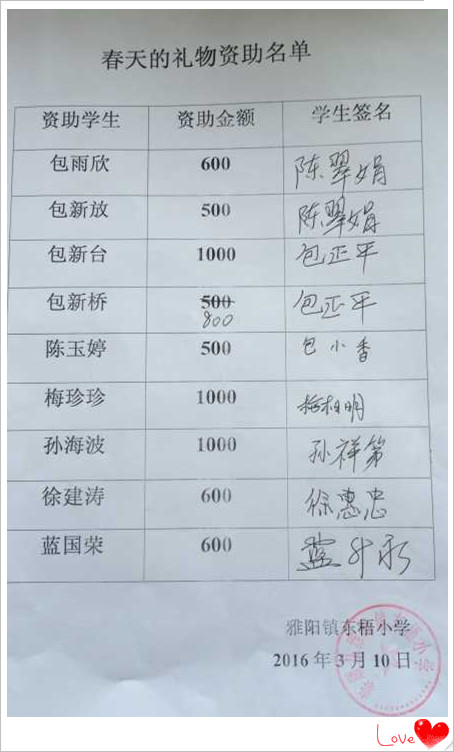 春天的礼物资助名单
资助学生 资助金额 学生签名
包雨欣 600 陈翠娟
包新放 500 陈翠娟
包新台 1000 包正平
包新桥 500 包正平
800
陈玉婷 500 包小香
梅珍珍 1000 梅相明
孙海波 1000 孙祥第
徐建涛 600 徐惠忠
蓝国荣 600 蓝升永
雅阳镇东梧小学
2016年3月10日
Love